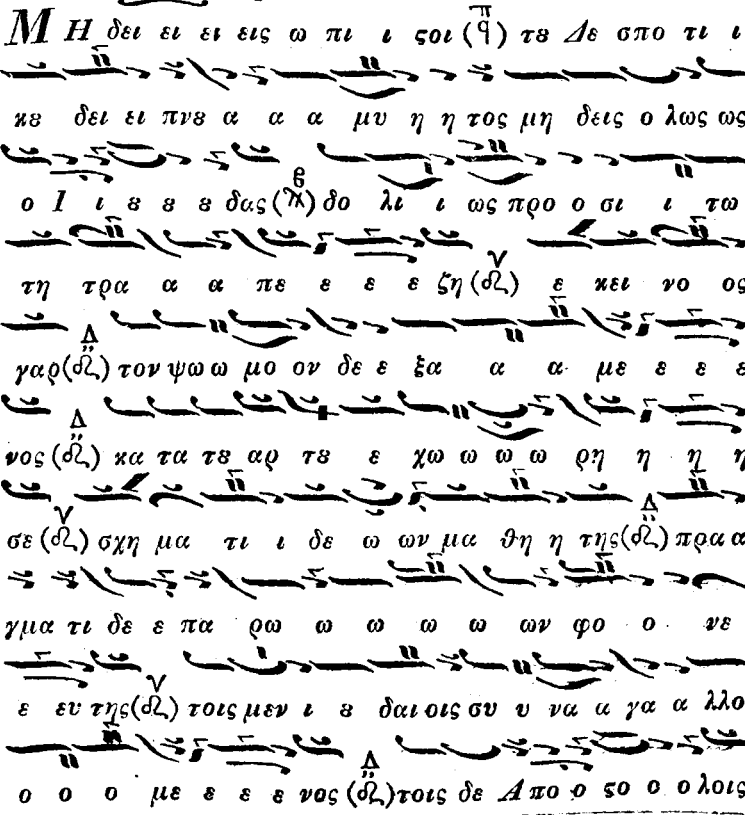 ΜΗ δει ει ει εις ω πι ι ϛοι (π ϥ) τȣ Δε σπο τι ι
κȣ δει ει πνȣ α α α μυ η η τος μη δεις ο λως ως
ο Ι ι ȣ ȣ ȣ δας ( ) δο λι ι ως προ ο σι ι τω
τη τρα α α πε ε ε ε ζη ( ) ε κει νο ος
γαρ (Δ ) τον ψω ω μο ον δε ε ξα α α με ε ε ε
νος (Δ ) κα τα τȣ αρ τȣ ε χω ω ω ω ρη η η η
σε ( ) σχη μα τι ι δε ω ων μα θη η της (Δ ) πρα α
γμα τι δε ε πα ρω ω ω ω ω ων φο ο νε
ε ευ της ( ) τοις μεν ι ȣ δαι οις συ υ να α γα α λλο
ο ο ο με ε ε ε νος (Δ ) τοις δε Απο ο ϛο ο ο λοις